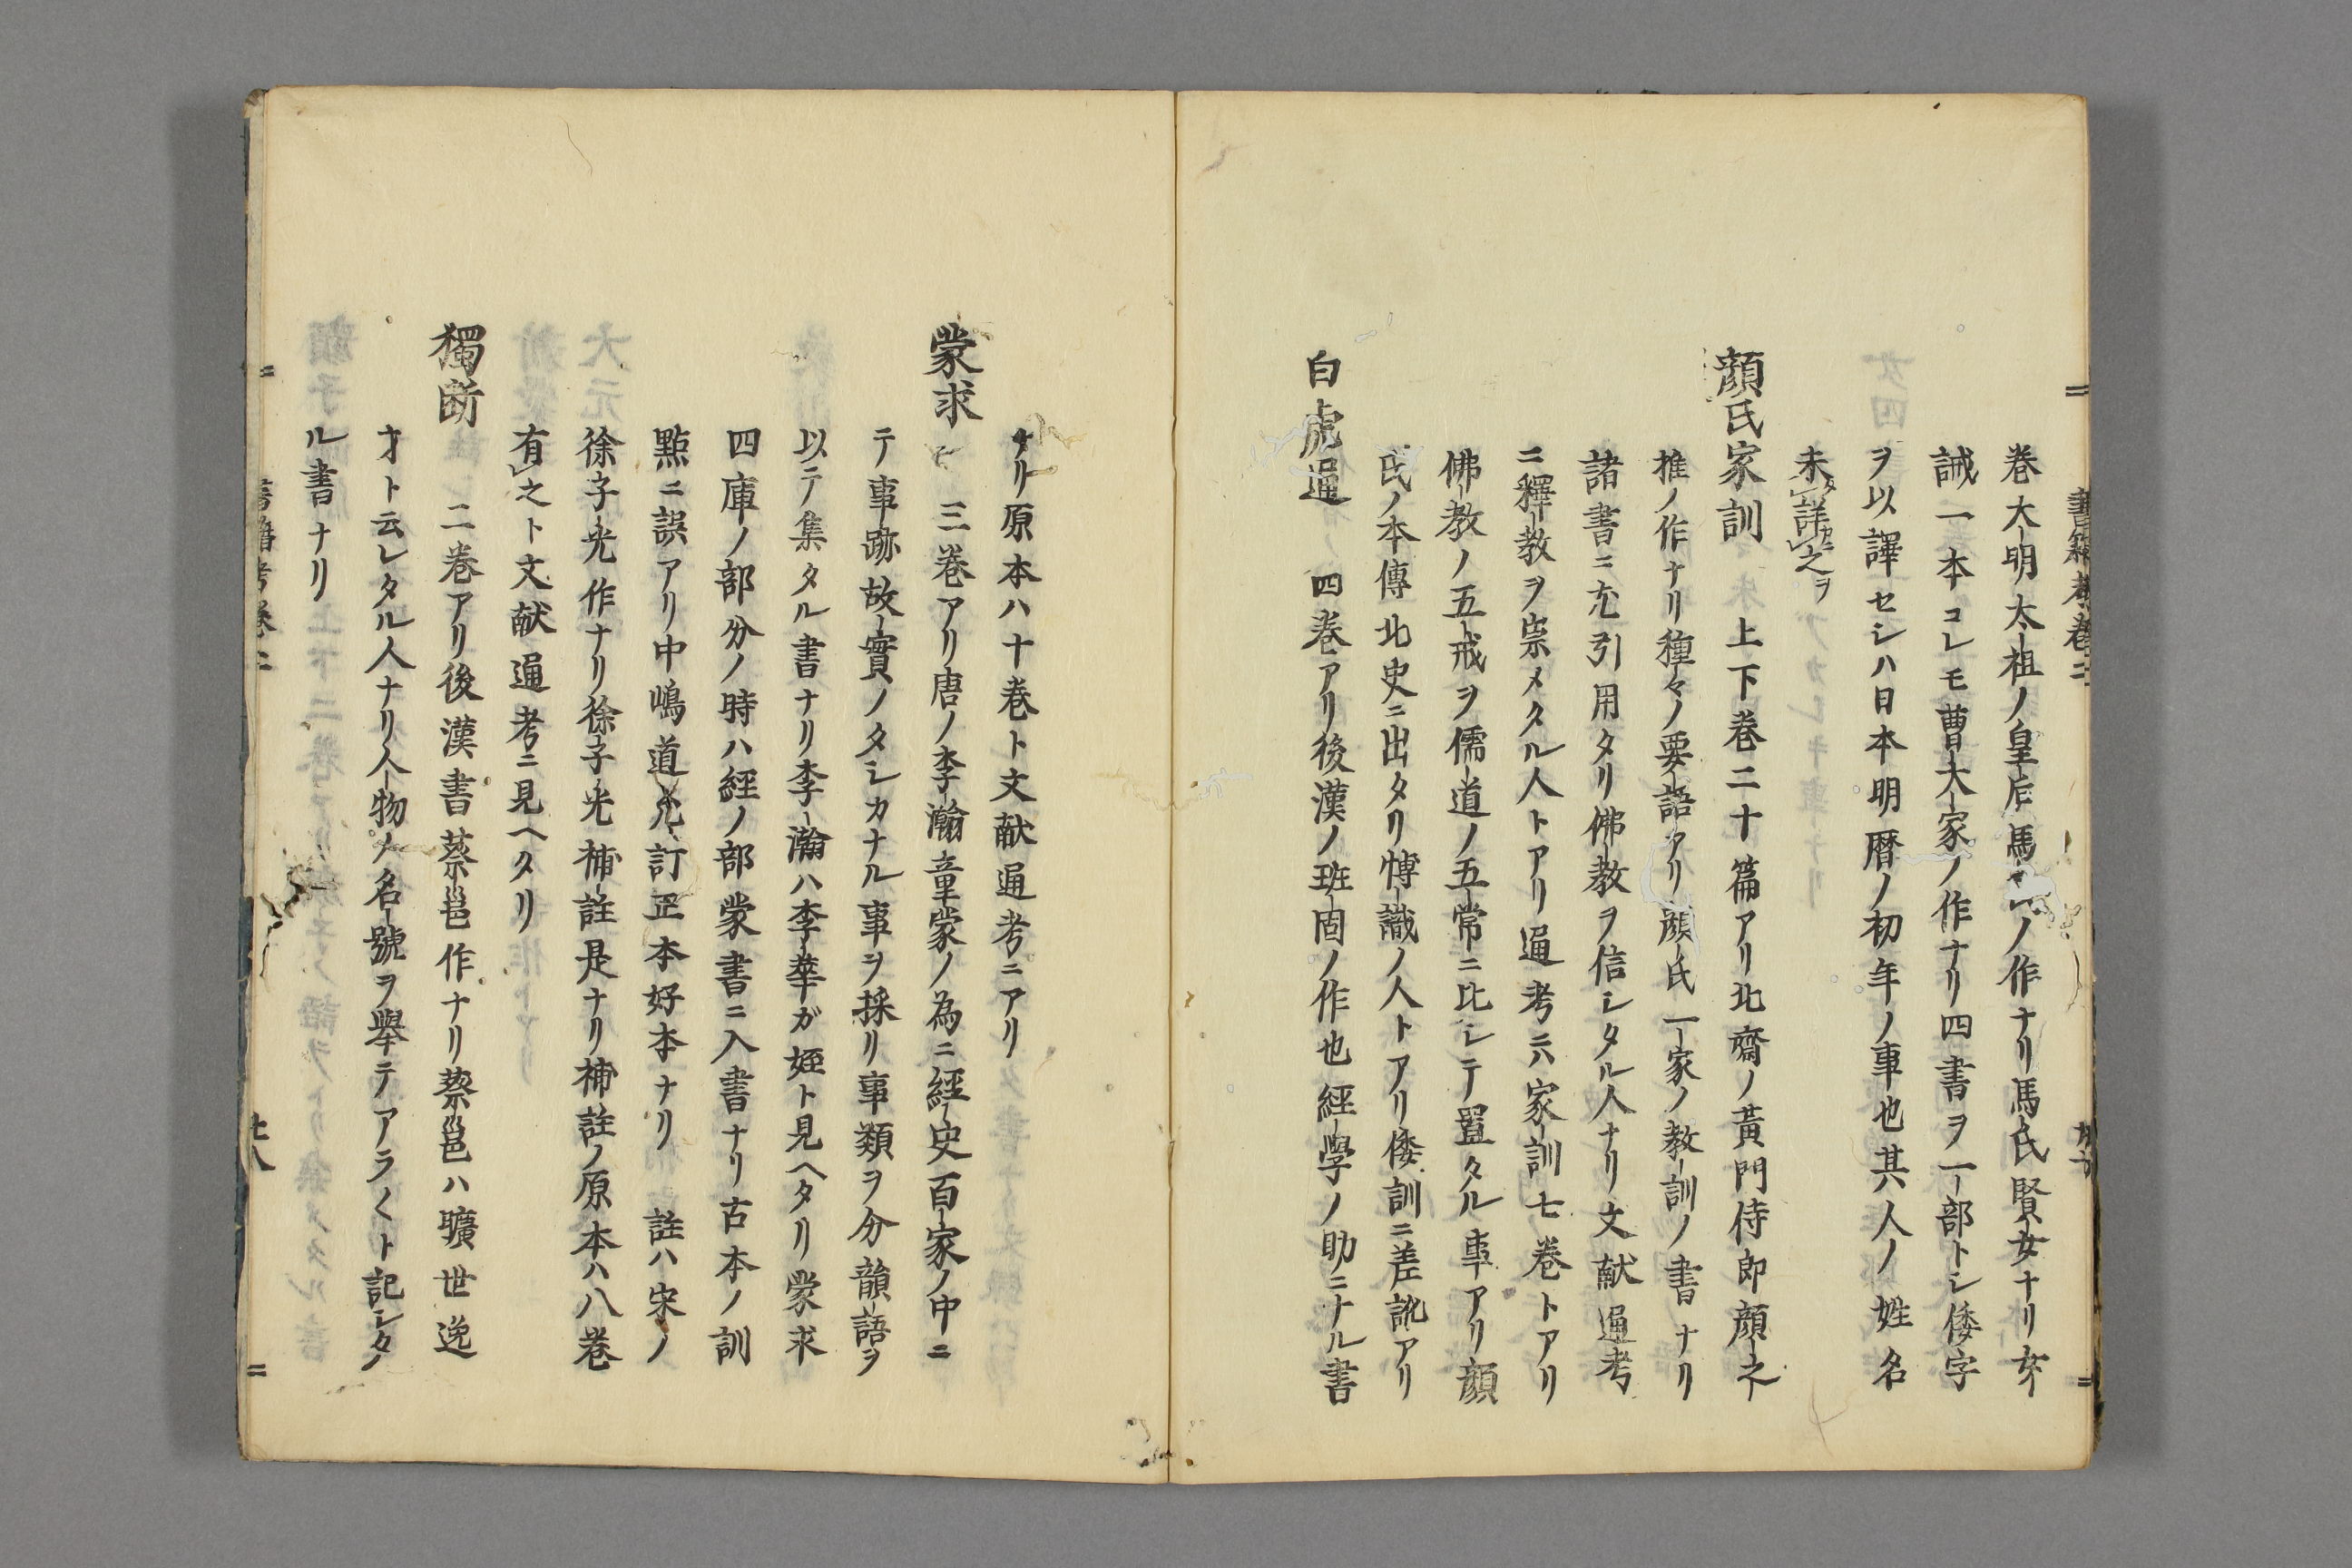 書籍考巻二
巻大明太祖ノ皇后馬氏ノ作ナリ馬氏賢女ナリ女
誡一本コレモ曹大家ノ作ナリ四書ヲ一部トシ倭字
ヲ以譯セシハ日本明暦ノ初年ノ事也其人ノ姓名
未タ詳カニ之ヲ
顔氏家訓 上下巻二十篇アリ北齋ノ黄門侍郎顔之
推ノ作ナリ種々ノ要語アリ顔氏一家ノ教訓ノ書ナリ
諸書ニ尤引用タリ佛教ヲ信シタル人ナリ文献通考
ニ釋教ヲ崇メタル人トアリ通考ニハ家訓七巻トアリ
佛教ノ五戒ヲ儒道ノ五常ニ比シテ置タル事アリ顔
氏ノ本傳北史ニ出タリ博識ノ人トアリ倭訓ニ差訛アリ
白虎通 四巻アリ後漢ノ班固ノ作也経學ノ助ニナル書
ナリ原本ハ十巻ト文献通考ニアリ
蒙求 三巻アリ唐ノ李瀚童蒙ノ為ニ經史百家ノ中ニ
テ事跡故實ノタシカナル事ヲ採リ事類ヲ分韻語ヲ
以テ集タル書ナリ李瀚ハ李華ガ姪ト見ヘタリ蒙求
四庫ノ部分ノ時ハ經ノ部蒙書ニ入書ナリ古本ノ訓
點ニ誤アリ中嶋道允訂正本好本ナリ 註ハ宋ノ
徐子光作ナリ徐子光補註是ナリ補註ノ原本ハ八巻
有之ト文献通考ニ見ヘタリ
獨断 二巻アリ後漢書蔡邕作ナリ蔡邕ハ曠世逸
才ト云レタル人ナリ人物ノ名號ヲ舉テアラ〱ト記シタ
ル書ナリ
書籍考巻二
七八